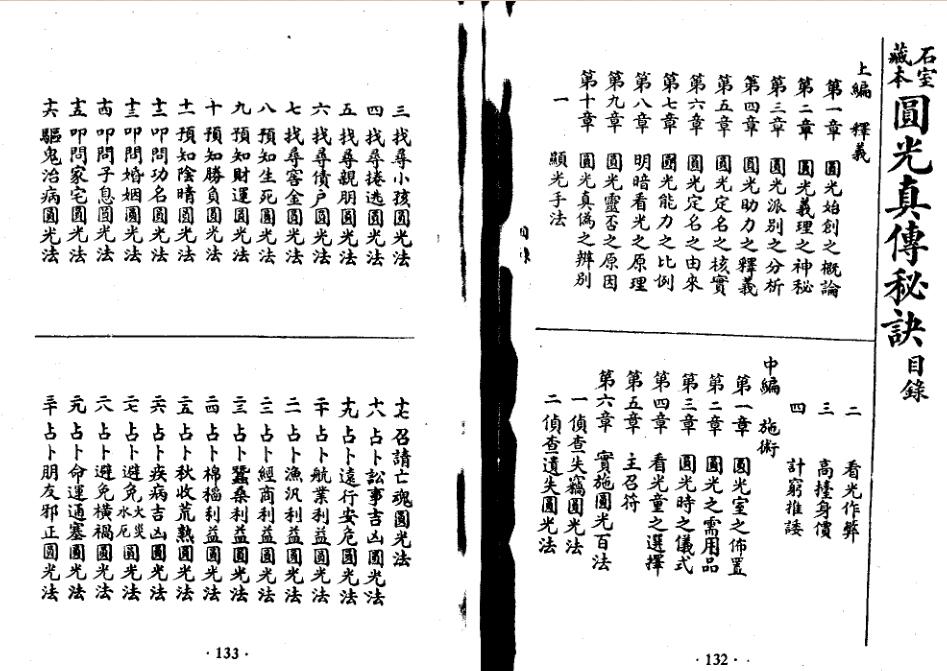 石室藏本 圓光真傳秘訣 目錄
上編 釋義
第一章 圓光始創之概論
第二章 圓光義理之神秘
第三章 圓光派別之分析
第四章 圓光助力之釋義
第五章 圓光定名之核實
第六章 圓光定名之由來
第七章 圓光能力之比例
第八章 明暗看光之原理
第九章 圓光靈否之原因
第十章 圓光真偽之辨別
一 顯光手法
二 看光作弊
三 高擡身價
四 計窮推諉
中編 施術
第一章 圓光室之佈置
第二章 圓光之需用品
第三章 圓光時之儀式
第四章 看光童之選擇
第五章 主召符
第六章 實施圓光百法
一 偵查失竊圓光法
二 偵查遺失圓光法
目錄
·132·
三 找尋小孩圓光法
四 找尋捲逃圓光法
五 找尋親朋圓光法
六 找尋債戶圓光法
七 找尋窖金圓光法
八 預知生死圓光法
九 預知財運圓光法
十 預知勝負圓光法
十一 預知陰晴圓光法
十二 叩問功名圓光法
十三 叩問婚姻圓光法
十四 叩問子息圓光法
十五 叩問家宅圓光法
十六 驅鬼治病圓光法
十七 召請亡魂圓光法
十八 占卜訟事吉凶圓光法
十九 占卜遠行安危圓光法
二十 占卜航業利益圓光法
二一 占卜漁汛利益圓光法
二二 占卜經商利益圓光法
二三 占卜蠶桑利益圓光法
二四 占卜棉稻利益圓光法
二五 占卜秋收荒熟圓光法
二六 占卜疾病吉凶圓光法
二七 占卜避免火災水厄圓光法
二八 占卜避免橫禍圓光法
二九 占卜命運通塞圓光法
三十 占卜朋友邪正圓光法
·133·